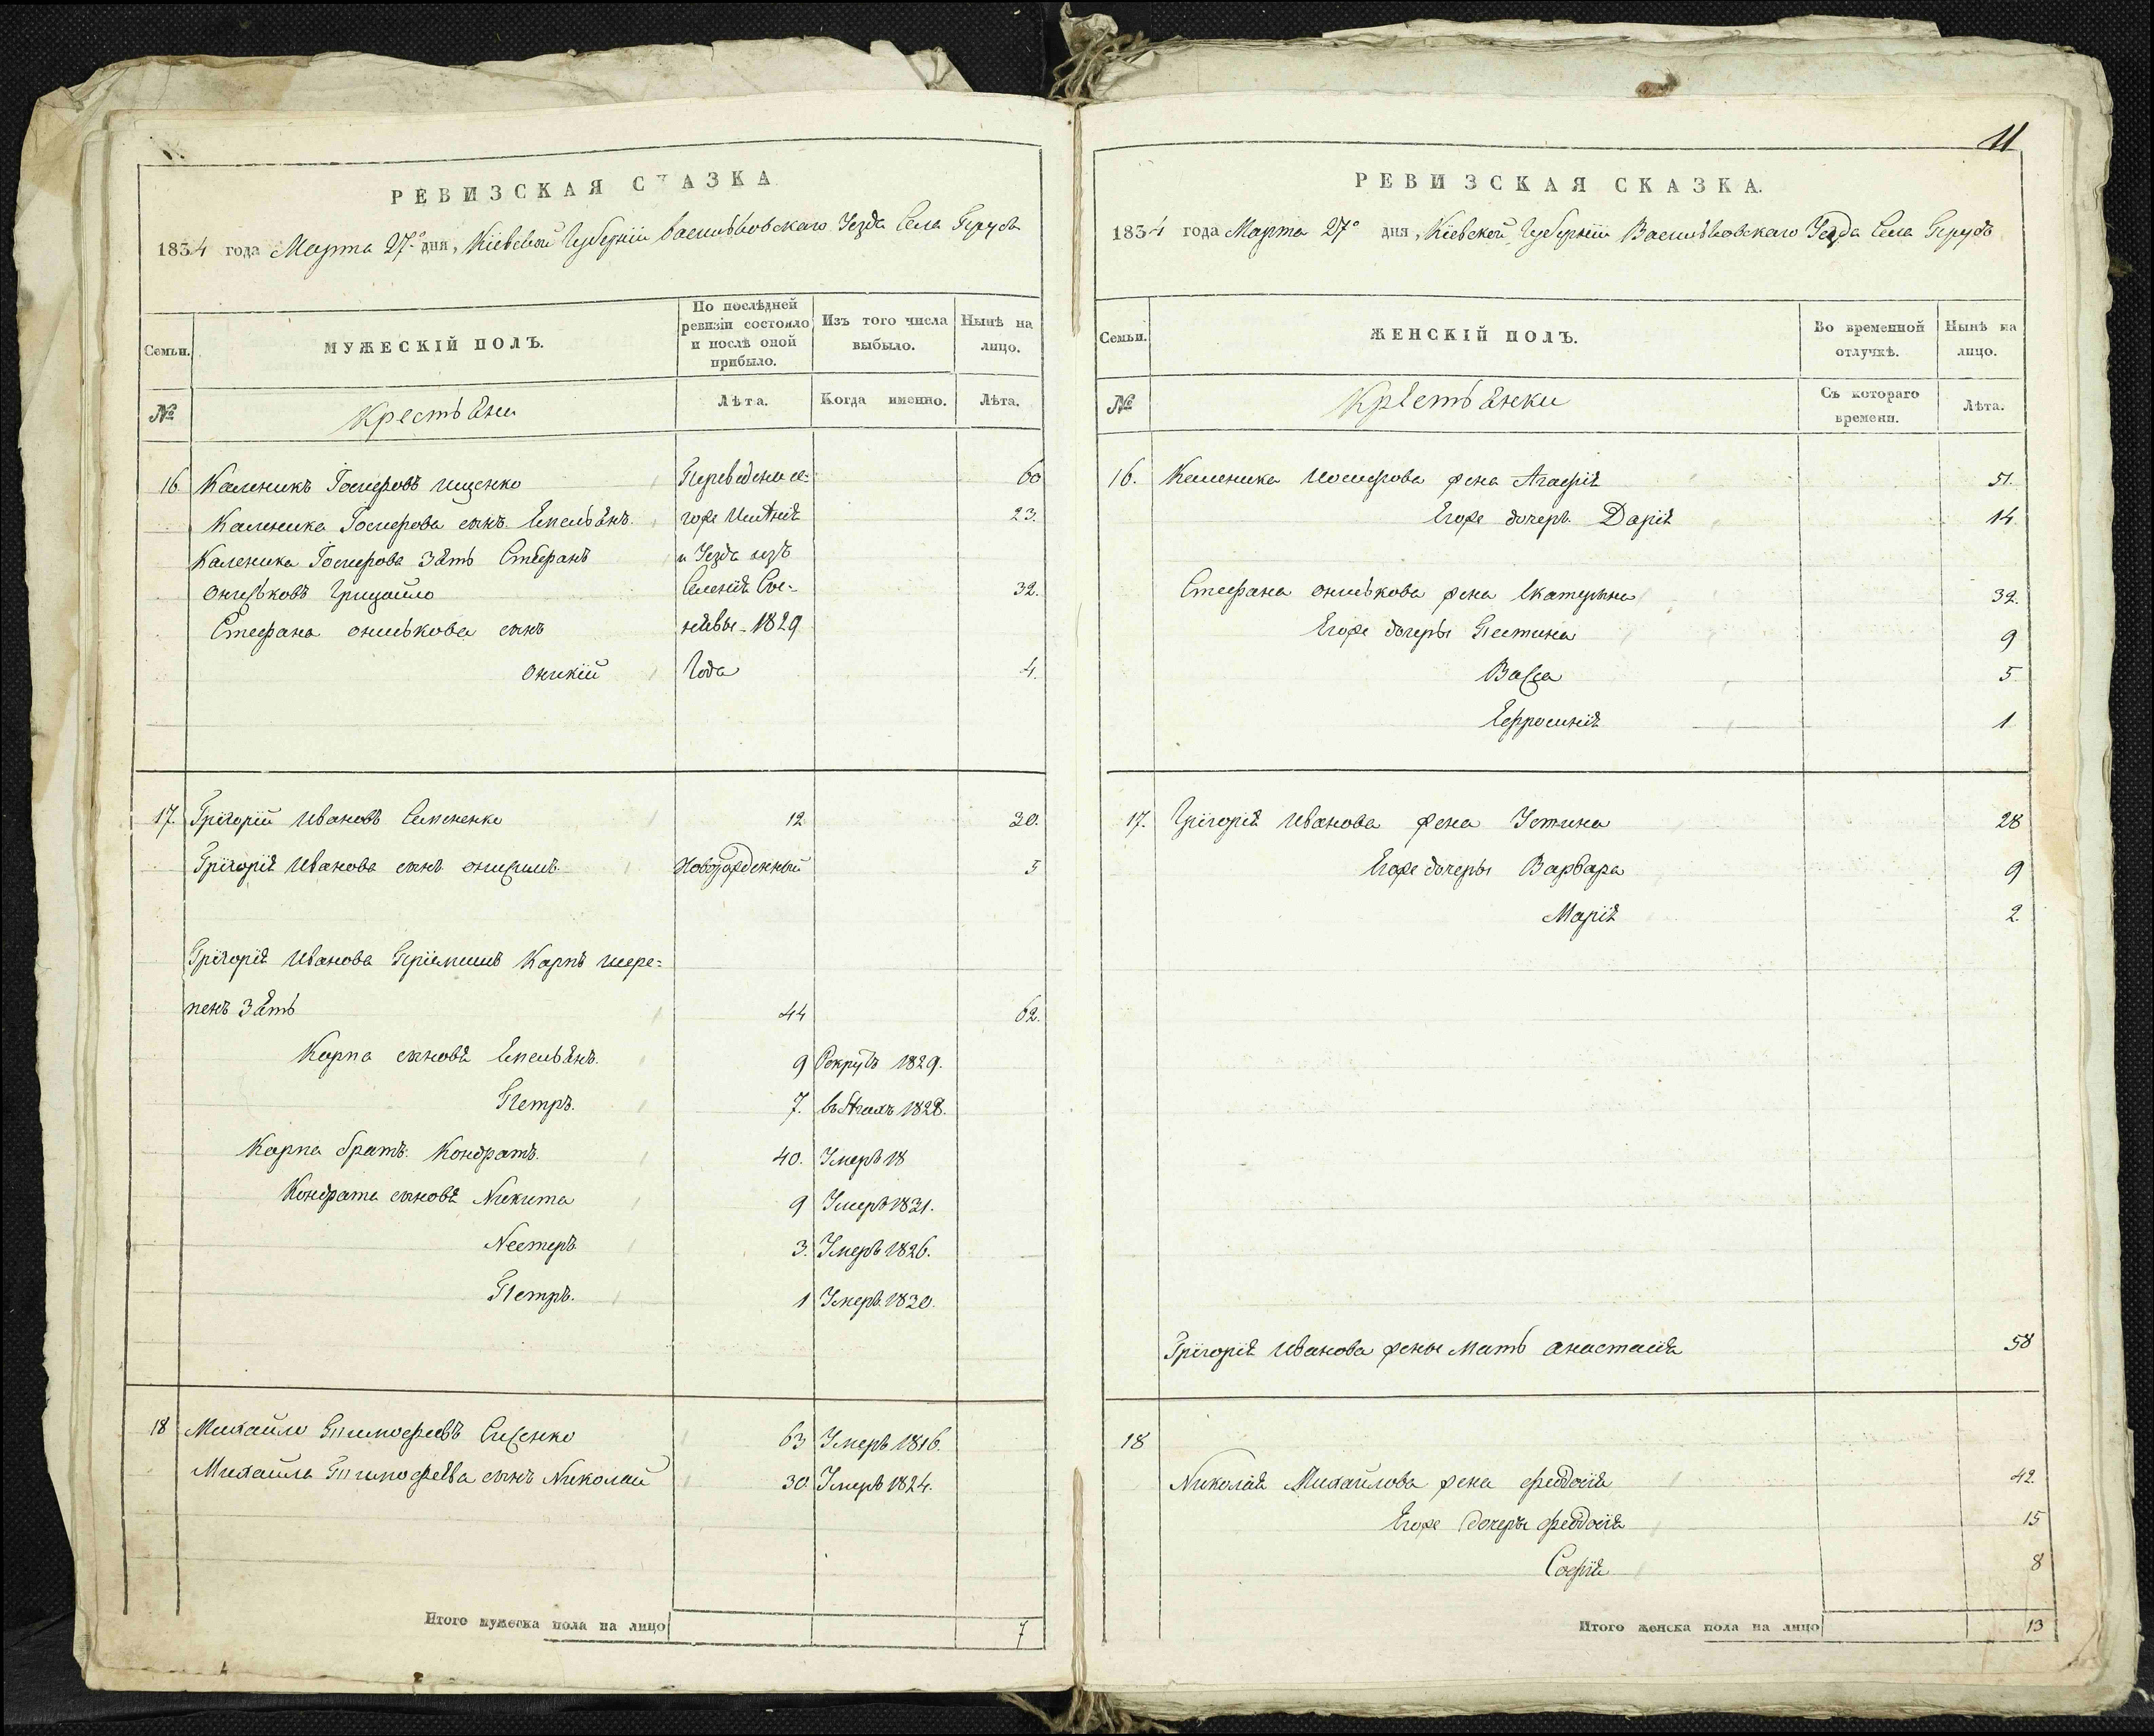 РЕВИЗСКАЯ СКАЗКА
1834 года Марта 27го дня, Кіевской Губерніи Васильковскаго Уезда Села Прусъ
Семьи.
МУЖЕСКІЙ ПОЛЪ.
По послѣдней ревизіи состояло и послѣ оной прибыло.
Изъ того числа выбыло.
Нынѣ на лицо.
№
Крестьяни
Лѣта.
Когда именно.
Лѣта.
16 Каленикъ Іосифовъ Ищенко Переведени се- 60
Каленика Іосифова сынъ Емельянъ. гоже Имѣнія 23.
Каленика Іосифова Зять Стефанъ и Уезда изъ
Ониськовъ Грицайло Селенія 32.
СтефанаОниськова сынъ 1829
Оникій Года 4.
17. Григорій Ивановъ Семененко 12 30.
Григорія Иванова сынъ Онисимъ Новорожденный 5
Григорія Иванова Пріймишъ Карпъ Шере-
пенъ Зять 44 62.
Карпа сыновя Емельянъ. 9 Рекрутъ 1829.
Петръ. 7. въ бѣгахъ 1828.
Карпа братъ Кондратъ. 40. Умеръ 18
Кондрата сыновя Никита 9 Умеръ 1831.
Нестеръ 3. Умеръ 1826.
Петръ. 1 Умеръ 1820.
18 Михайло Тимофеевъ Сисенко 63 Умеръ 1816.
Михайла Тимофеева сынъ Николай 30 Умеръ 1824.
Итого мужеска пола на лицо 7
11
РЕВИЗСКАЯ СКАЗКА.
1834 года Марта 27го дня, Кіевской Губерніи Васильковскаго Уезда Села Прусъ
Семьи.
ЖЕНСКІЙ ПОЛЪ.
Во временной отлучкѣ.
Нынѣ на лицо.
№
Крестьянки
Съ котораго времени.
Лѣта.
16. Каленика Иосифова жена Агафія 51.
Егоже дочерь Дарія 14
СтефанаОниськова жена Екатерина 32.
Егоже дочеры Пестина 9
Васса 5
Ефросинія 1
17. Григорія Иванова жена Устина 28
Егоже дочеры Варвара 9
Марія 2.
Григорія Иванова жены Мать Анастасія 58
18
Николая Михайлова жена Феодосія 42.
Егоже дочеры Феодосія 15
Софія 8
Итого женска пола на лицо 13